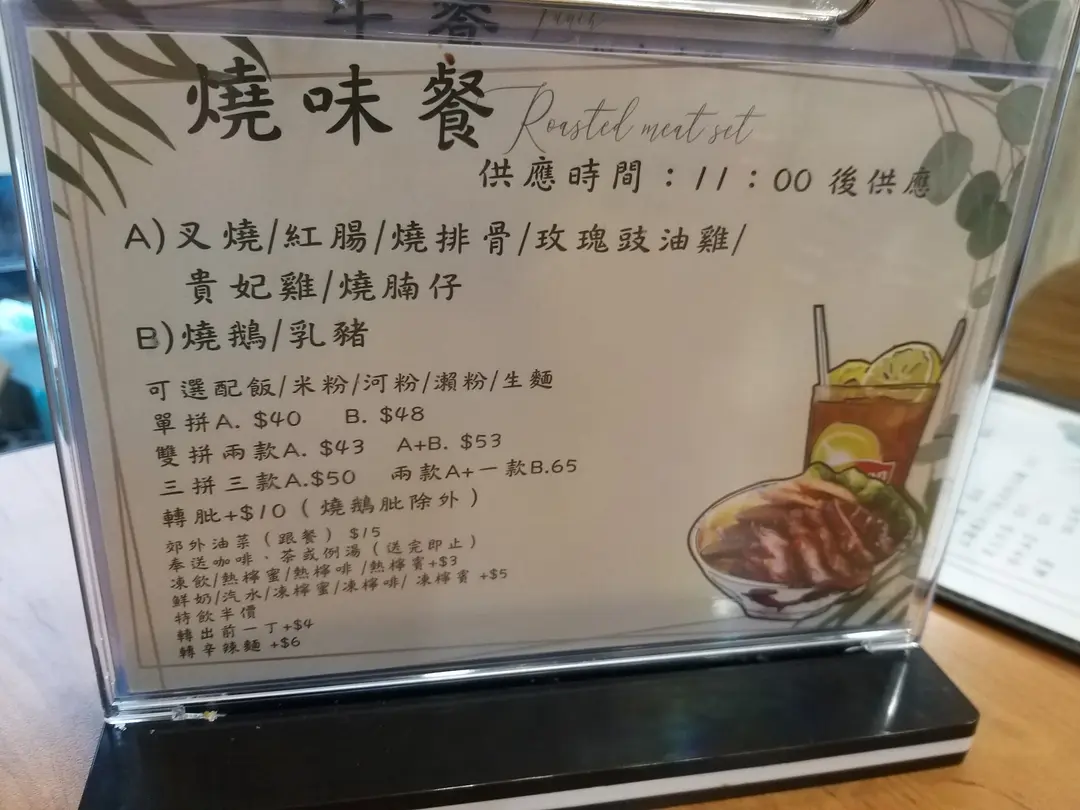 燒味餐 Roasted meat set
供應時間：11：00 後供應
A)叉燒/紅腸/燒排骨/玫瑰豉油雞/
貴妃雞/燒腩仔
B)燒鵝/乳豬
可選配飯/米粉/河粉/瀨粉/生麵
單拼A. $40 B. $48
雙拼兩款A. $43 A+B. $53
三拼三款A.$50 兩款A+一款B.65
轉肶+$10（燒鵝肶除外）
郊外油菜（跟餐）$15
奉送咖啡、茶或例湯（送完即止）
凍飲/熱檸蜜/熱檸啡/熱檸賓+$3
鮮奶/汽水/凍檸蜜/凍檸啡/凍檸賓 +$5
特飲半價
轉出前一丁+$4
轉辛辣麵 +$6